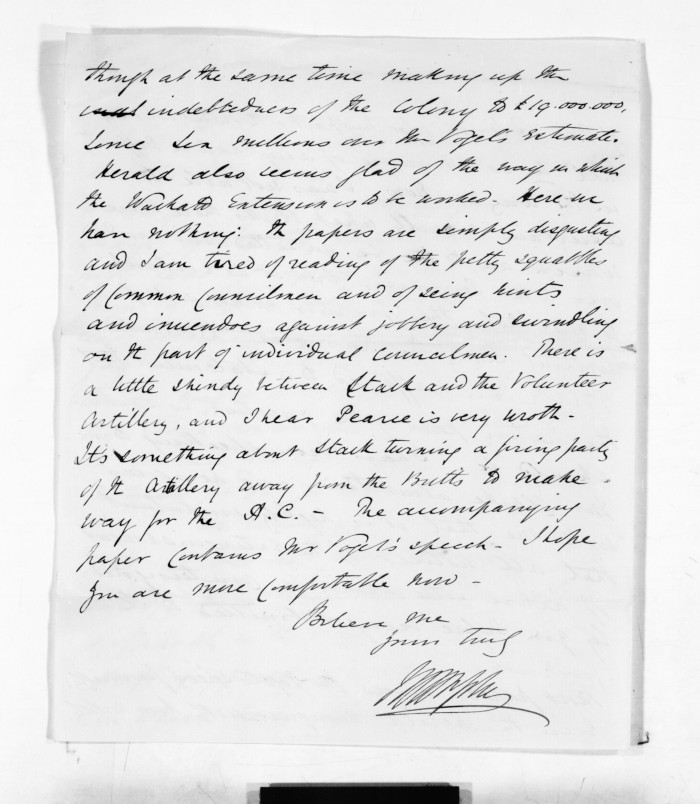 though at the same time making up the
indebtedness of the Colony to £19.000.000,
Some Six millions over Mr Vogel's Estimate.
Herald also seems glad of the way in which
the Waikato Extension is to be worked. Here we
have nothing: the papers are simply disgusting
and I am tired of reading of the petty squabbles
of Common Councilmen and of seing hints
and inuendoes against jobbery and swindling
on the part of individual councilmen. There is
a little shindy between Stack and the Volunteer
Artillery, and I hear Pearce is very wroth -
Its something about Stack turning a firing party
of the Artillery away from the Butts to make
way for the A.C. - The accompanying
paper contains Mr Vogel's speech - I hope
you are more comfortable now -
Believe me
Yours truly